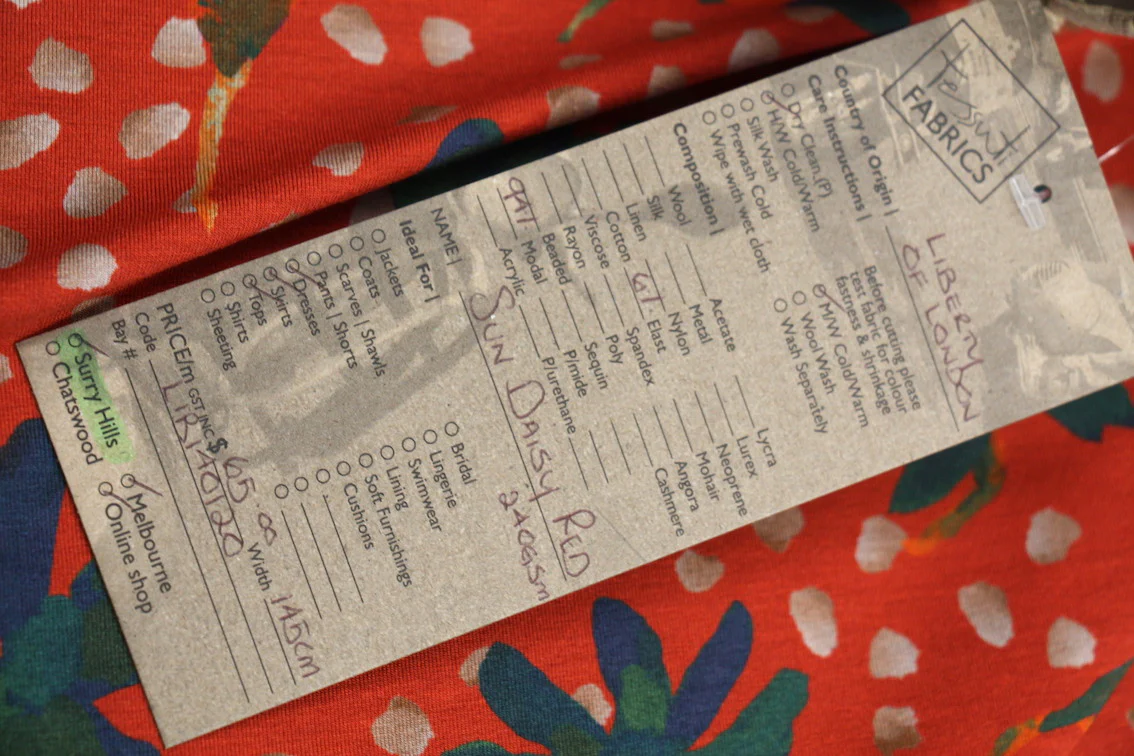 Tessuti
FABRICS
Country of Origin | LIBERTY
OF LONDON
Care Instructions |
Dry Clean (P)
H/W Cold/Warm
Silk Wash
Prewash Cold
Wipe with wet cloth
Before cutting please
test fabric for colour
fastness & shrinkage
M/W Cold/Warm
Wool Wash
Wash Separately
Composition |
Wool
Silk
Linen
Cotton
Viscose
Rayon
Beaded
94% Modal
Acrylic
Acetate
Metal
Nylon
6% Elast
Spandex
Poly
Sequin
P/mide
P/urethane
Lycra
Lurex
Neoprene
Mohair
Angora
Cashmere
NAME | SUN DAISY RED
240GSm
Ideal For |
Jackets
Coats
Scarves | Shawls
Pants | Shorts
Dresses
Skirts
Tops
Shirts
Sheeting
Bridal
Lingerie
Swimwear
Lining
Soft Furnishings
Cushions
PRICE/m GST INC $ 65.00 Width 145cm
Code LIR140120
Bay #
Surry Hills
Chatswood
Melbourne
Online shop